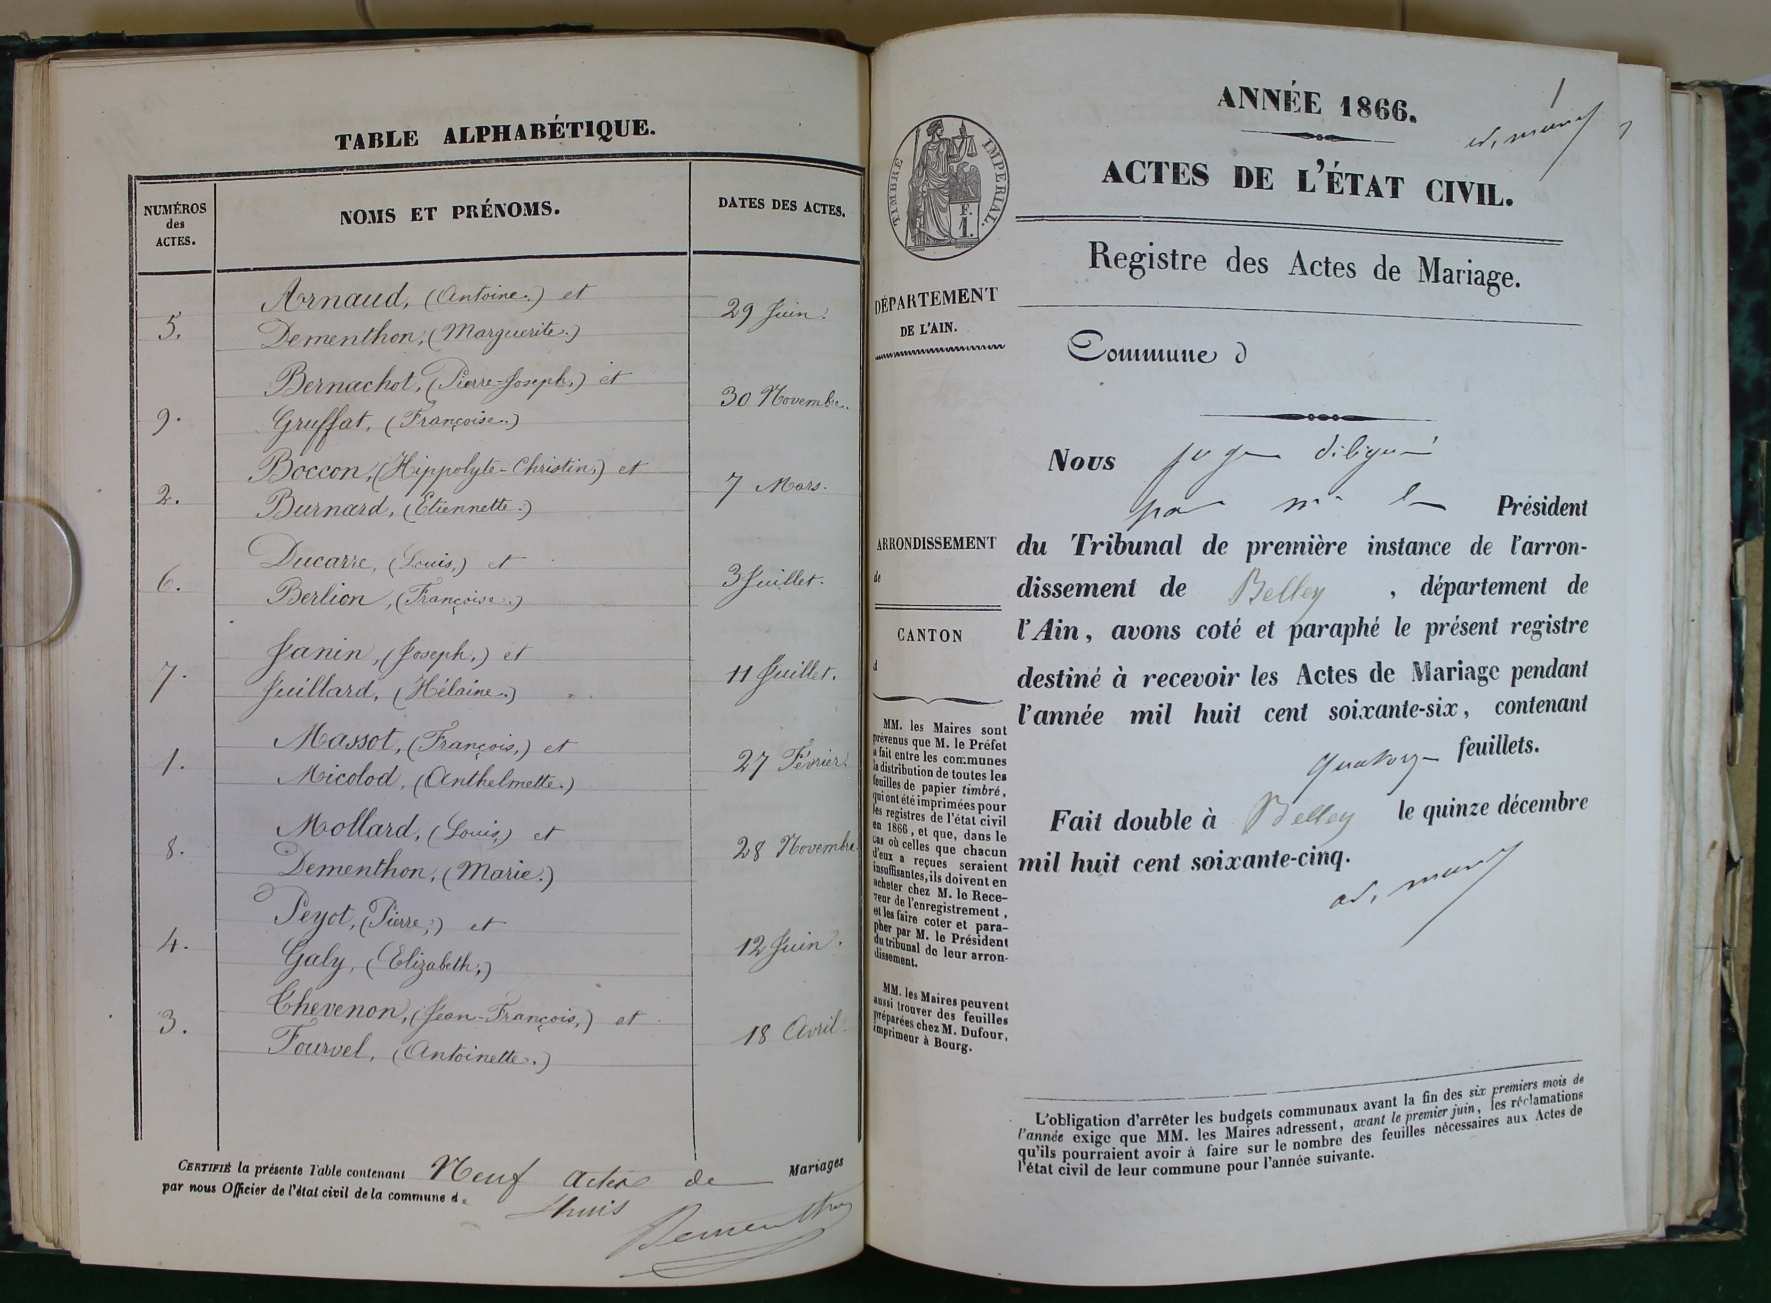 TABLE ALPHABÉTIQUE.
NUMÉROS
des
ACTES.
NOMS ET PRÉNOMS.
DATES DES ACTES.
Arnaud, (Antoine.) et
5.
29 Juin.
Dementhon, (Marguerite.)
Bernachot, (Pierre-Joseph,) et
9.
30 Novembre.
Gruffat, (Françoise.)
Boccon, (Hippolyte-Christin,) et
2.
7 Mars.
Burnard, (Etiennette.)
Ducarre, (Louis,) et
6.
3 Juillet.
Berlion, (Françoise.)
Janin, (Joseph,) et
7.
11 Juillet.
Juillard, (Hélaine.)
Massot, (François,) et
1.
27 Février.
Micolod, (Anthelmette.)
Mollard, (Louis,) et
8.
28 Novembre
Dementhon, (Marie.)
Peyot, (Pierre,) et
4.
12 Juin.
Galy, (Elizabeth,)
Thevenon, (Jean-François,) et
3.
18 Avril.
Fourvel, (Antoinette.)
CERTIFIÉ la présente Table contenant Neuf actes de Mariages
par nous Officier de l'état civil de la commune de
Lhuis
Dementhon
1
ANNÉE 1866.
ACTES DE L'ÉTAT CIVIL.
TIMBRE IMPÉRIAL.
F.
1.
Registre des Actes de Mariage.
DÉPARTEMENT
DE L'AIN.
Commune d
Nous juge délégué
par Mr le Président
ARRONDISSEMENT
de
CANTON
d
du Tribunal de première instance de l'arron-
dissement de Belley, département de
l'Ain, avons coté et paraphé le présent registre
destiné à recevoir les Actes de Mariage pendant
l'année mil huit cent soixante-six, contenant
quatorze feuillets.
Fait double à Belley le quinze décembre
mil huit cent soixante-cinq.
MM. les Maires sont
prévenus que M. le Préfet
a fait entre les communes
la distribution de toutes les
feuilles de papier timbré,
qui ont été imprimées pour
les registres de l'état civil
en 1866, et que, dans le
cas où celles que chacun
d'eux a reçues seraient
insuffisantes, ils doivent en
acheter chez M. le Rece-
veur de l'enregistrement,
et les faire coter et para-
pher par M. le Président
du tribunal de leur arron-
dissement.
MM. les Maires peuvent
aussi trouver des feuilles
préparées chez M. Dufour,
imprimeur à Bourg.
L'obligation d'arrêter les budgets communaux avant la fin des six premiers mois de
l'année exige que MM. les Maires adressent, avant le premier juin, les réclamations
qu'ils pourraient avoir à faire sur le nombre des feuilles nécessaires aux Actes de
l'état civil de leur commune pour l'année suivante.